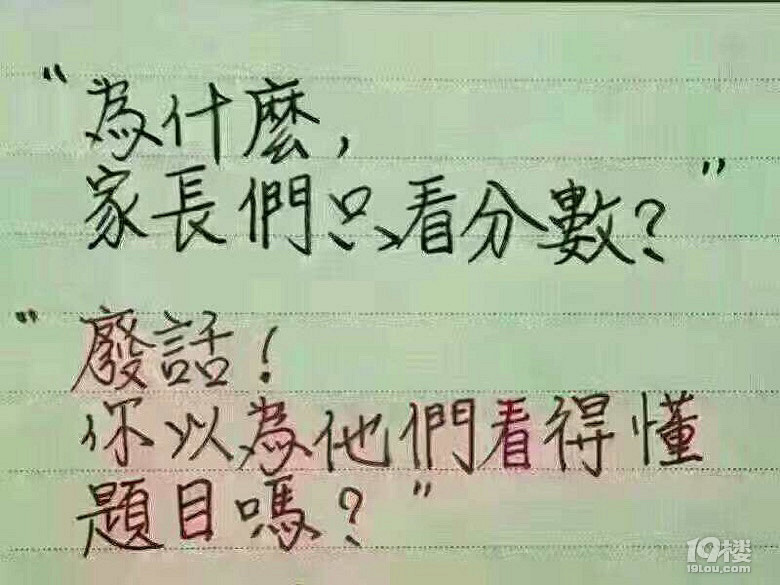 “為什麼,
家長們只看分數？”
“廢話！
你以為他們看得懂
題目嗎？”
19楼
19lou.com